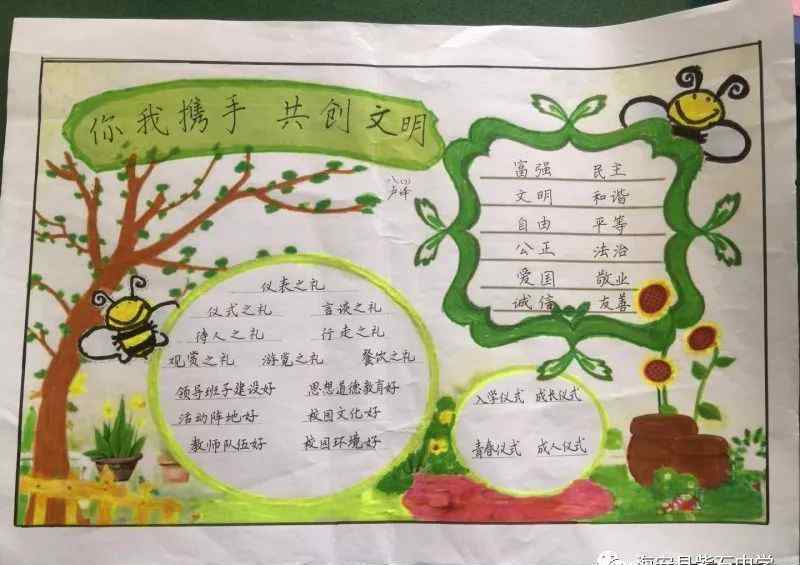 你我携手 共创文明
八(3)
富强 民主
文明 和谐
自由 平等
公正 法治
爱国 敬业
诚信 友善
仪表之礼
仪式之礼 言谈之礼
待人之礼 行走之礼
观赏之礼 游览之礼 餐饮之礼
领导班子建设好 思想道德教育好
活动阵地好 校园文化好
教师队伍好 校园环境好
入学仪式 成长仪式
青春仪式 成人仪式
海安县紫石中学